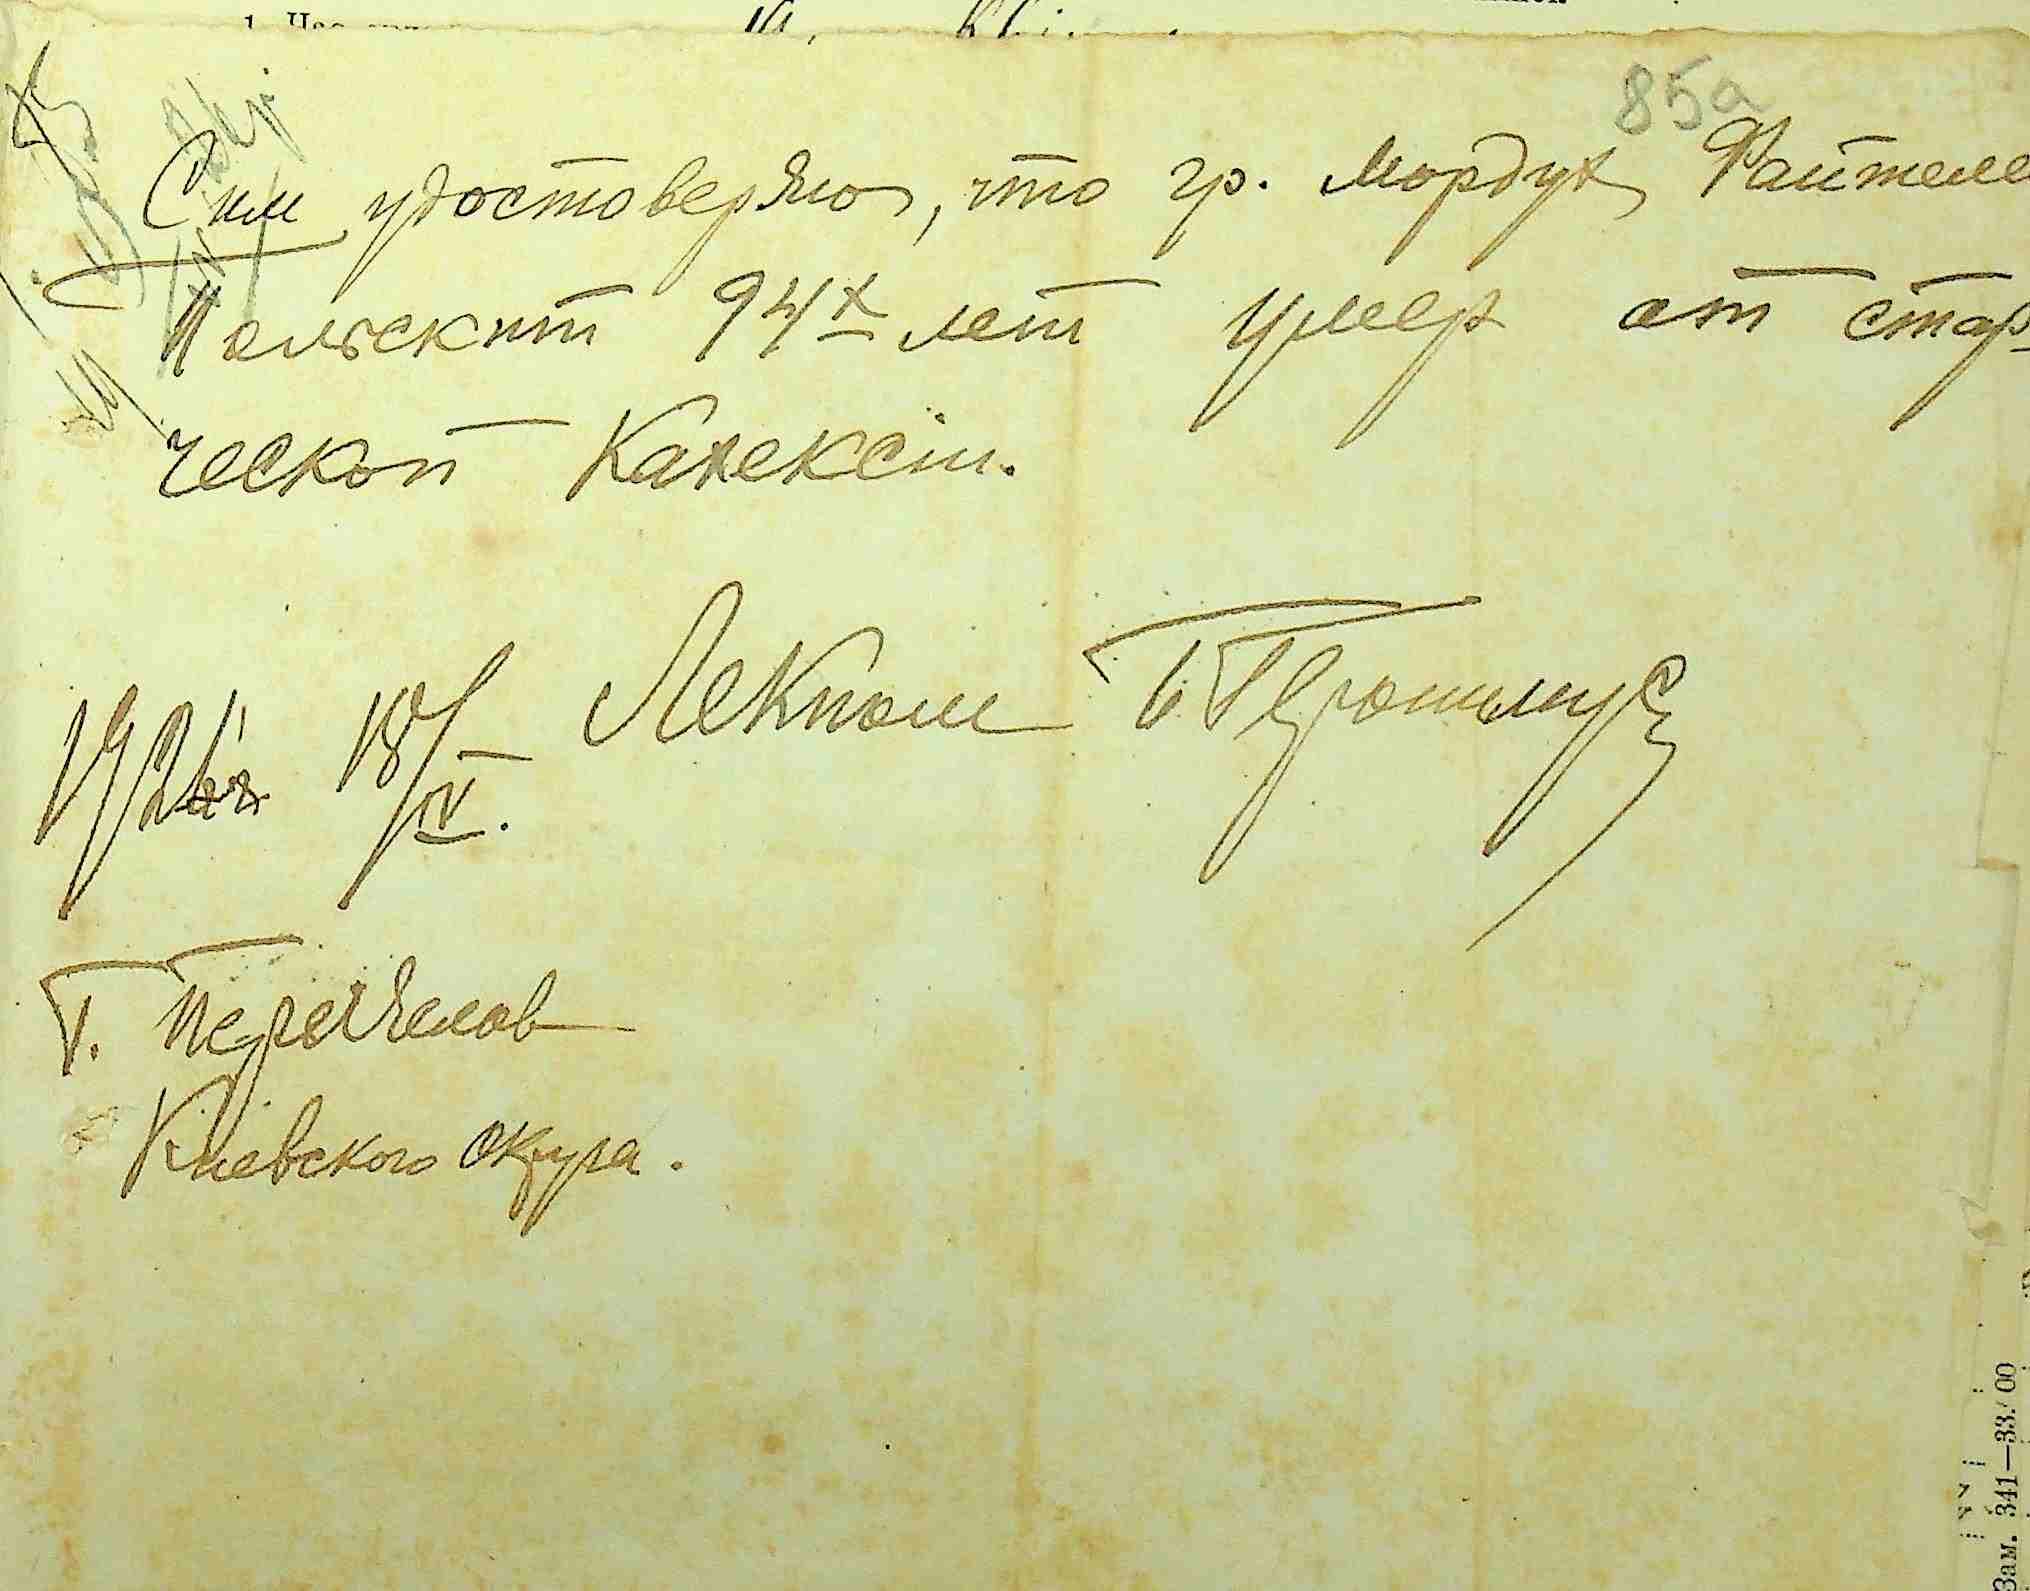 85а
Сим удостоверяю, что гр. Мордух Файтеле
Польский 94х лет умер от стар
ческой кахексіи.
18/IV. Лекпом
г. Переяслов
Киевского округа.
Зам. 341—33.